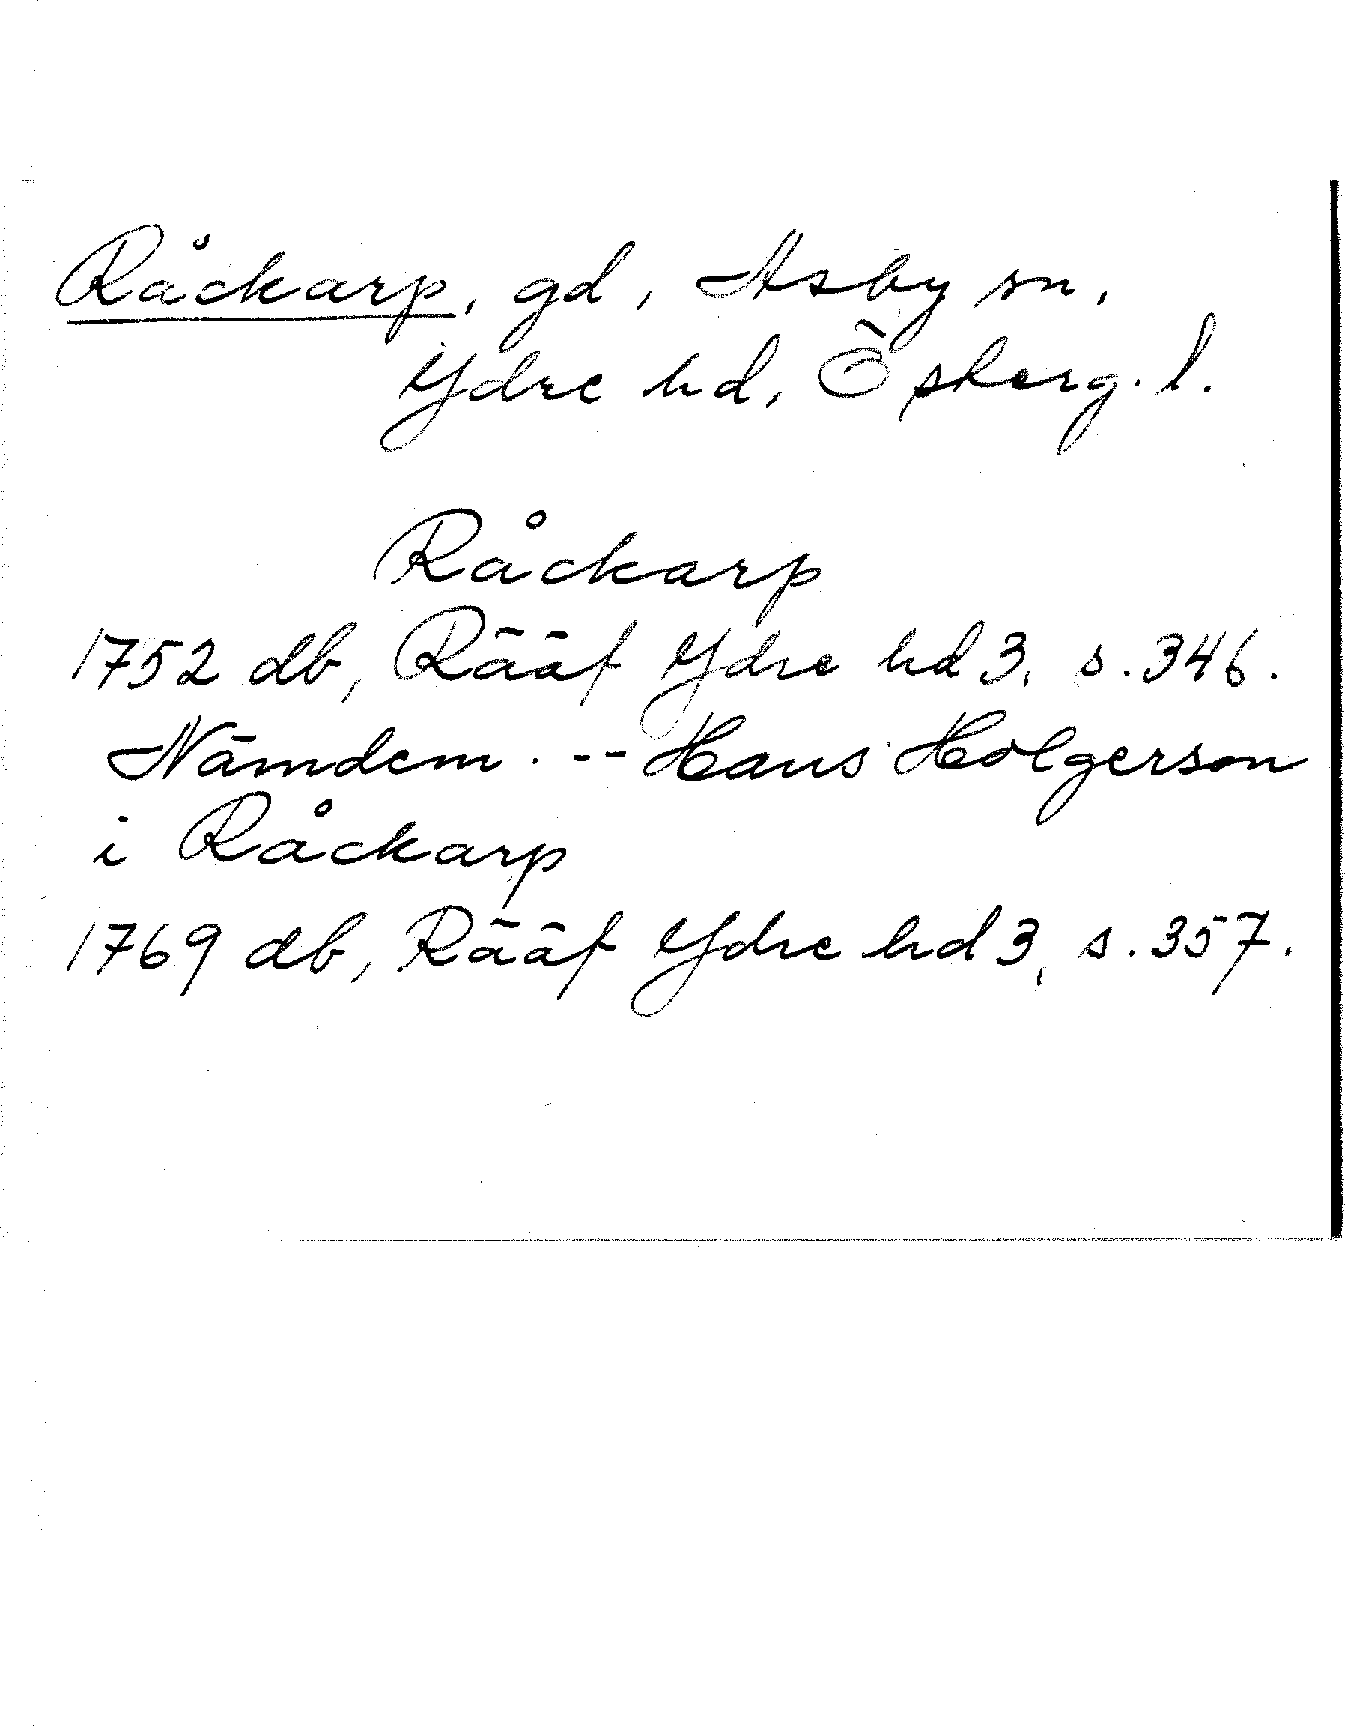 Råckarp, gd, Asby sn,
Ydre hd, Öpsterg. l.
Råckarp
1752 db, Rääf Ydre hd 3, s. 346.
Nämdem. -- Hans Holgerson
i Råckarp
1769 db, Rääf Ydre hd 3, s. 357.